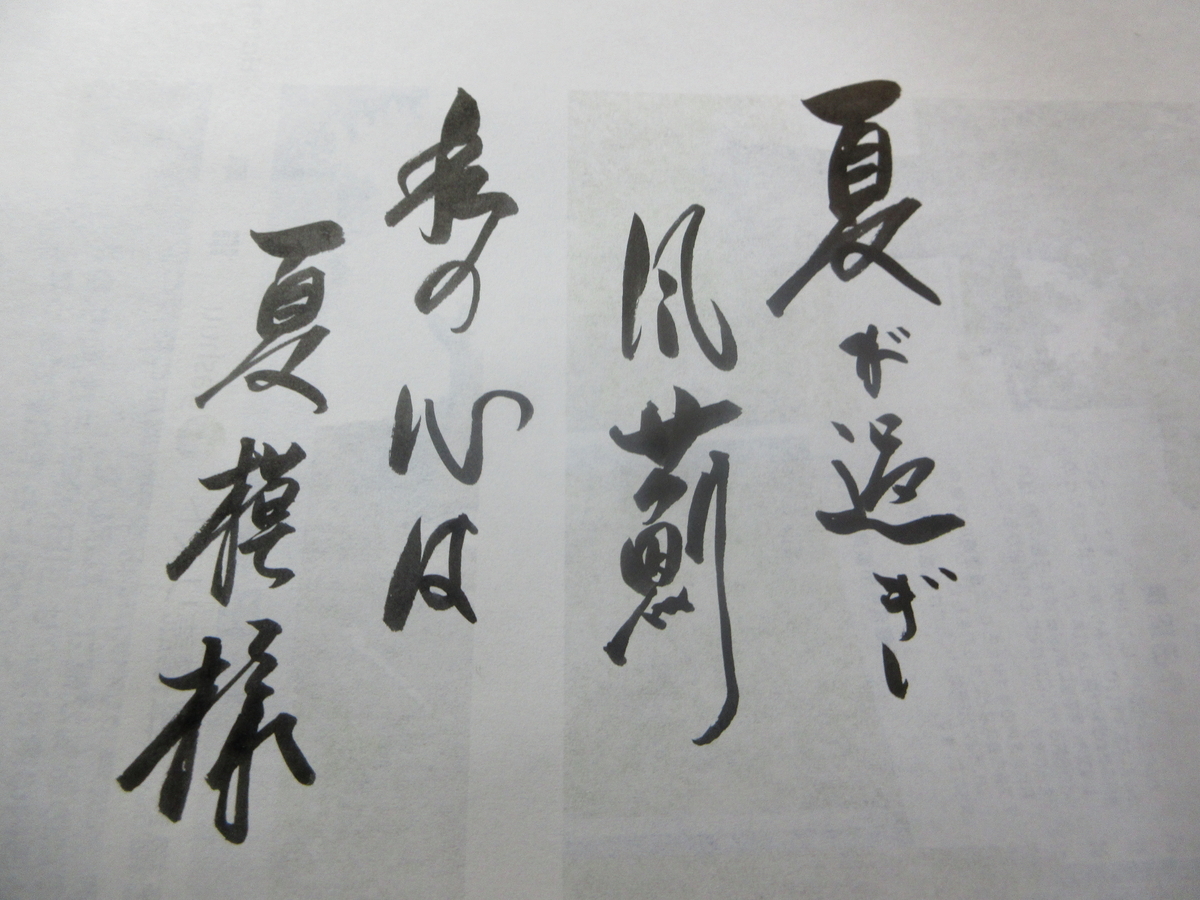 夏が過ぎ
風薊
私の心は
夏模様